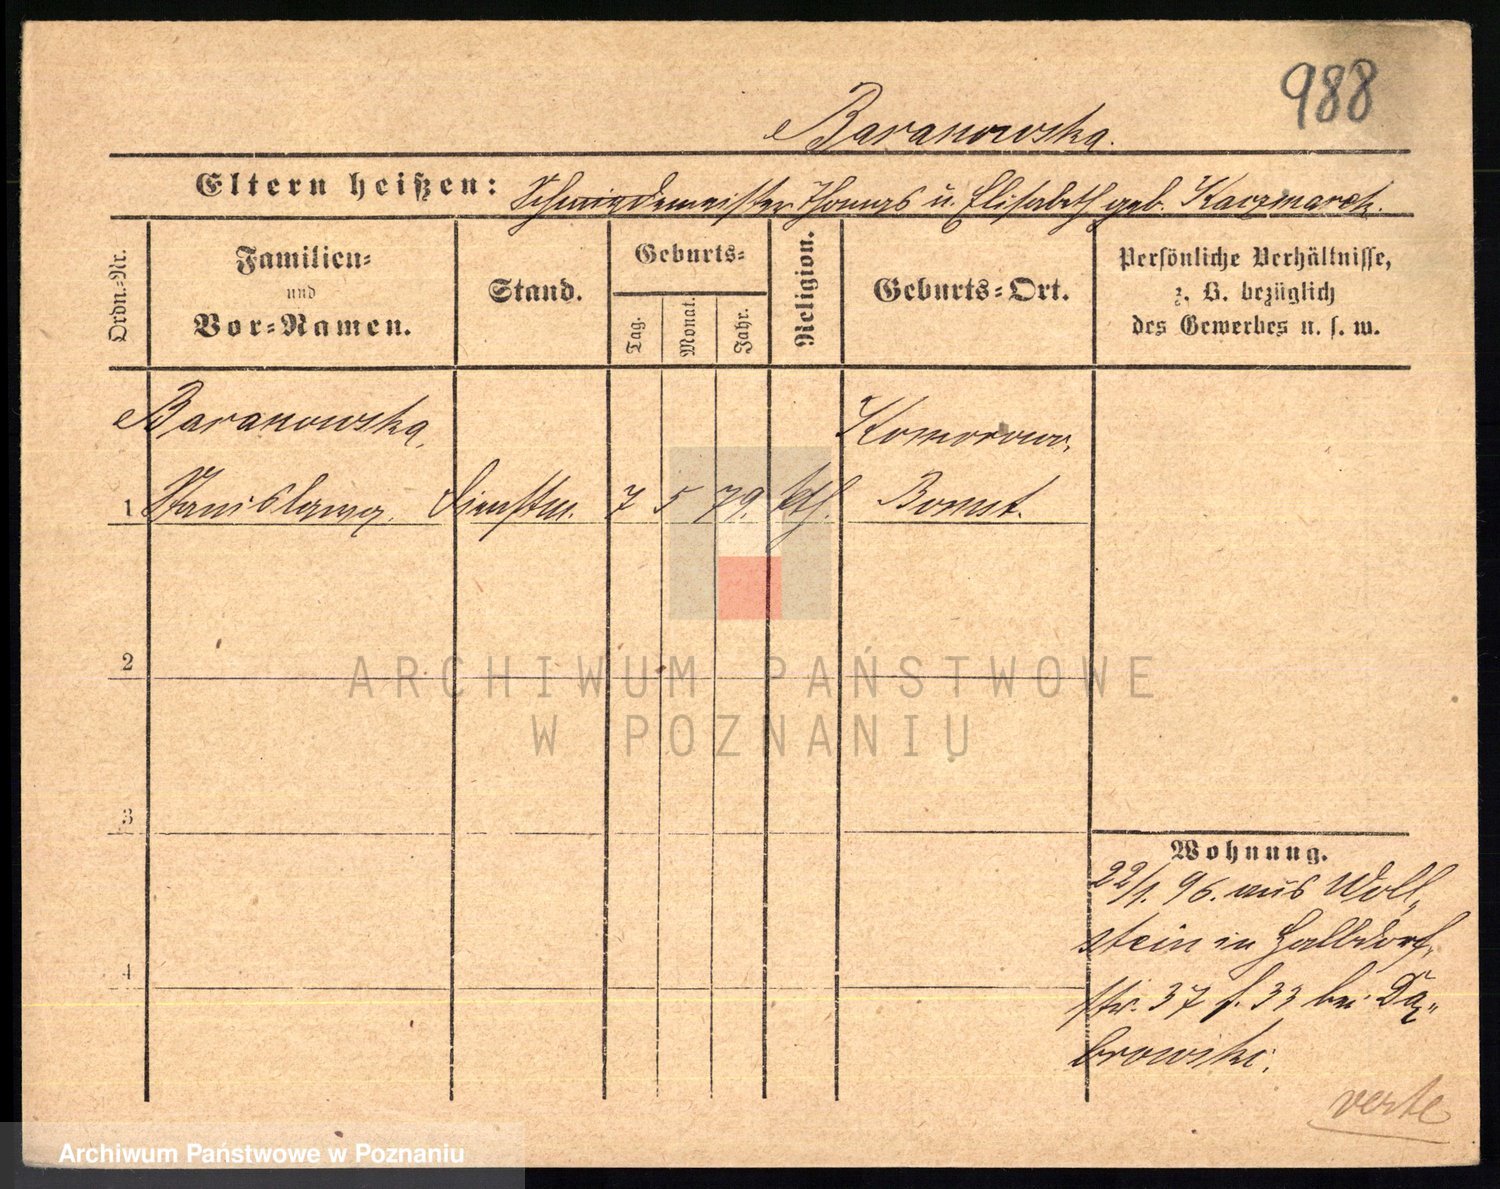 988
Baranowska.
Eltern heißen: Schmiedemeister Thomas u. Elisabeth geb. Kaczmarek.
Ordn.-Nr.
Familien-
und
Vor-Namen.
Stand.
Geburts-
Tag.
Monat.
Jahr.
Religion.
Geburts-Ort.
Persönliche Verhältnisse,
z. B. bezüglich
des Gewerbes u. s. w.
Baranowska, Komorowo,
1 Stanislawa. Dienstm. 7 5 79. kth. Bomst.
2
3
4
Wohnung.
22/1. 96. aus Woll-
stein in Halbdorf-
str. 37 f. 33 bei Dą-
browski.
verte
ARCHIWUM PAŃSTWOWE
W POZNANIU
Archiwum Państwowe w Poznaniu